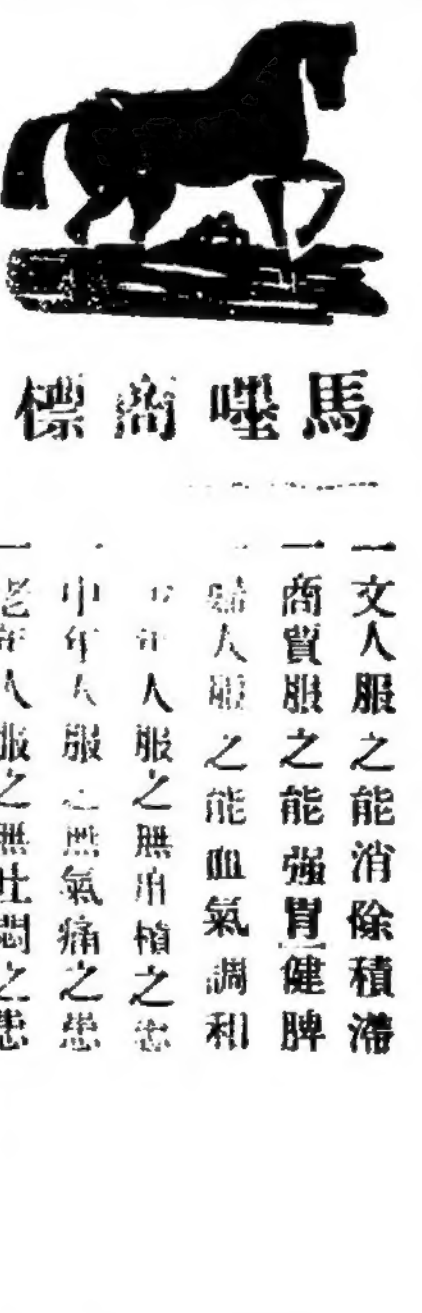 馬嘜商標
一文人服之能消除積滯
一商賈服之能强胃健脾
一婦人服之能血氣調和
少年人服之無疳積之患
一中年人服之無氣痛之患
一老年人服之無吐悶之患